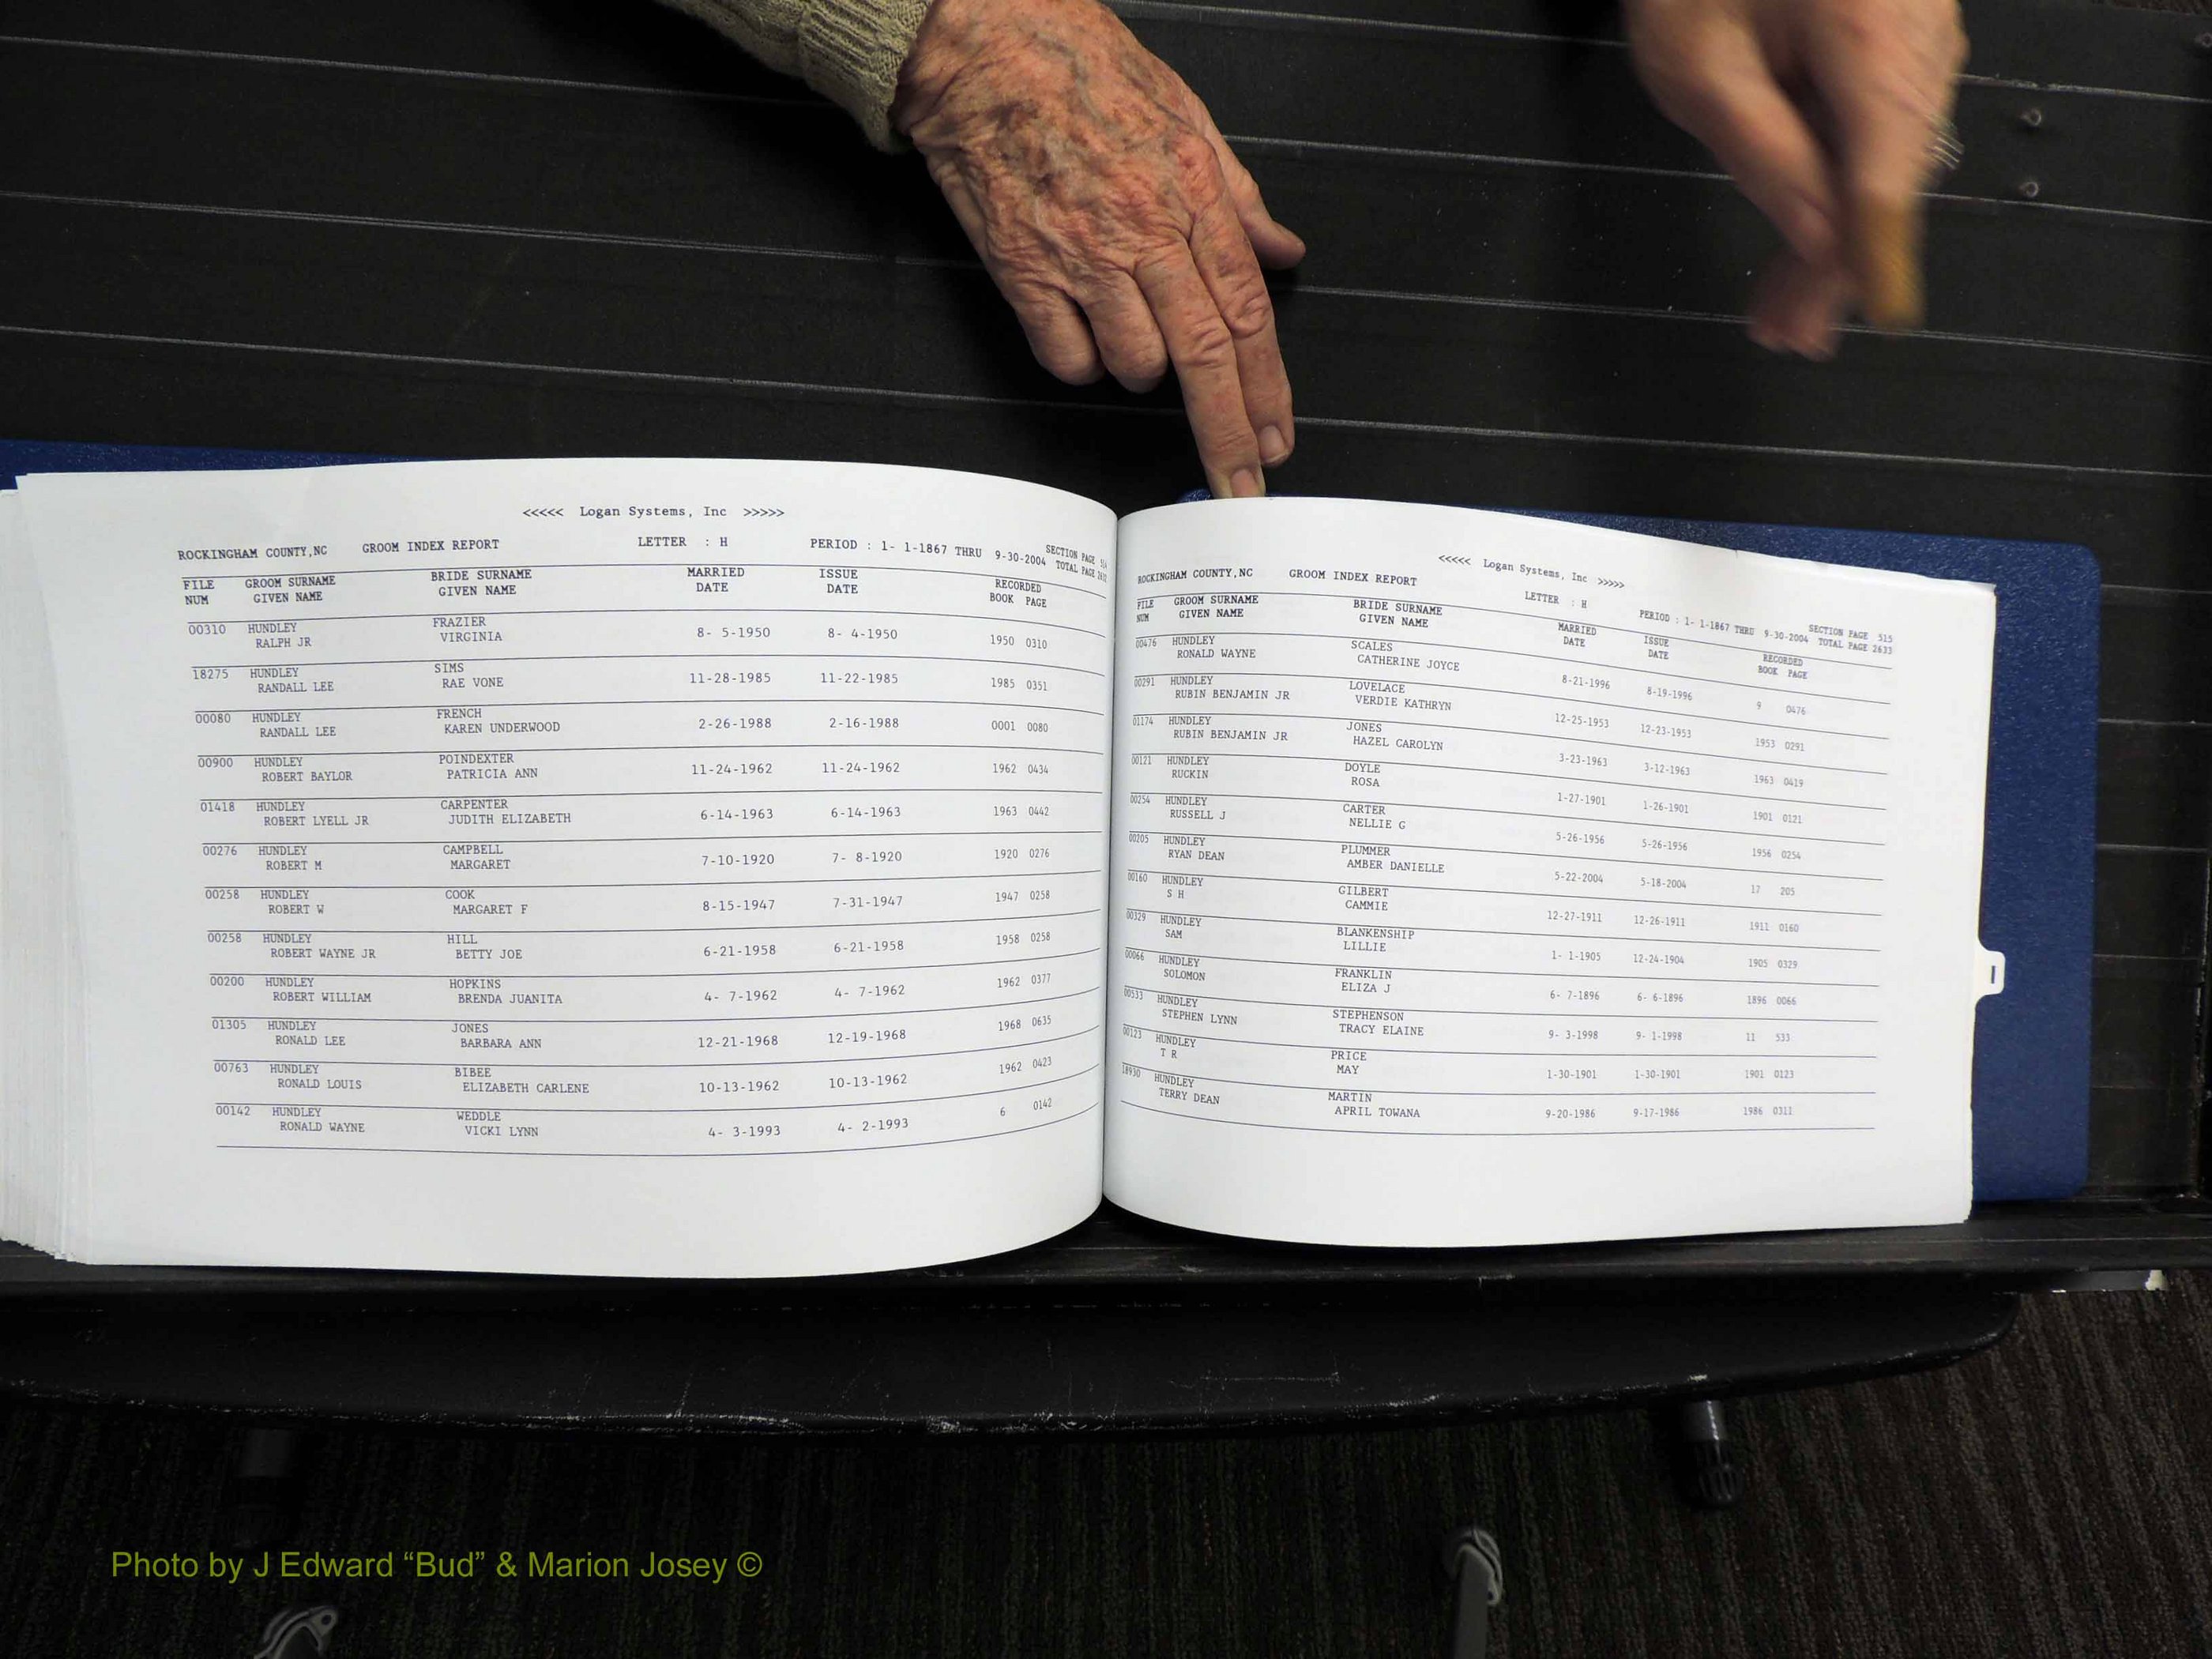 <<<<< Logan Systems, Inc >>>>>
ROCKINGHAM COUNTY,NC GROOM INDEX REPORT LETTER : H PERIOD : 1- 1-1867 THRU 9-30-2004 SECTION PAGE
TOTAL PAGE
FILE GROOM SURNAME BRIDE SURNAME MARRIED ISSUE RECORDED
NUM GIVEN NAME GIVEN NAME DATE DATE BOOK PAGE
00310 HUNDLEY FRAZIER
RALPH JR VIRGINIA 8- 5-1950 8- 4-1950 1950 0310
18275 HUNDLEY SIMS
RANDALL LEE RAE VONE 11-28-1985 11-22-1985 1985 0351
00080 HUNDLEY FRENCH
RANDALL LEE KAREN UNDERWOOD 2-26-1988 2-16-1988 0001 0080
00900 HUNDLEY POINDEXTER
ROBERT BAYLOR PATRICIA ANN 11-24-1962 11-24-1962 1962 0434
01418 HUNDLEY CARPENTER
ROBERT LYELL JR JUDITH ELIZABETH 6-14-1963 6-14-1963 1963 0442
00276 HUNDLEY CAMPBELL
ROBERT M MARGARET 7-10-1920 7- 8-1920 1920 0276
00258 HUNDLEY COOK
ROBERT W MARGARET F 8-15-1947 7-31-1947 1947 0258
00258 HUNDLEY HILL
ROBERT WAYNE JR BETTY JOE 6-21-1958 6-21-1958 1958 0258
00200 HUNDLEY HOPKINS
ROBERT WILLIAM BRENDA JUANITA 4- 7-1962 4- 7-1962 1962 0377
01305 HUNDLEY JONES
RONALD LEE BARBARA ANN 12-21-1968 12-19-1968 1968 0635
00763 HUNDLEY BIBEE
RONALD LOUIS ELIZABETH CARLENE 10-13-1962 10-13-1962 1962 0423
00142 HUNDLEY WEDDLE
RONALD WAYNE VICKI LYNN 4- 3-1993 4- 2-1993 6 0142
<<<<< Logan Systems, Inc >>>>>
ROCKINGHAM COUNTY,NC GROOM INDEX REPORT LETTER : H PERIOD : 1- 1-1867 THRU 9-30-2004 SECTION PAGE 515
TOTAL PAGE 2633
FILE GROOM SURNAME BRIDE SURNAME MARRIED ISSUE RECORDED
NUM GIVEN NAME GIVEN NAME DATE DATE BOOK PAGE
00476 HUNDLEY SCALES
RONALD WAYNE CATHERINE JOYCE 8-21-1996 8-19-1996 9 0476
00291 HUNDLEY LOVELACE
RUBIN BENJAMIN JR VERDIE KATHRYN 12-25-1953 12-23-1953 1953 0291
01174 HUNDLEY JONES
RUBIN BENJAMIN JR HAZEL CAROLYN 3-23-1963 3-12-1963 1963 0419
00121 HUNDLEY DOYLE
RUCKIN ROSA 1-27-1901 1-26-1901 1901 0121
00254 HUNDLEY CARTER
RUSSELL J NELLIE G 5-26-1956 5-26-1956 1956 0254
00205 HUNDLEY PLUMMER
RYAN DEAN AMBER DANIELLE 5-22-2004 5-18-2004 17 205
00160 HUNDLEY GILBERT
S H CAMMIE 12-27-1911 12-26-1911 1911 0160
00329 HUNDLEY BLANKENSHIP
SAM LILLIE 1- 1-1905 12-24-1904 1905 0329
00066 HUNDLEY FRANKLIN
SOLOMON ELIZA J 6- 7-1896 6- 6-1896 1896 0066
00533 HUNDLEY STEPHENSON
STEPHEN LYNN TRACY ELAINE 9- 3-1998 9- 1-1998 11 533
00123 HUNDLEY PRICE
T R MAY 1-30-1901 1-30-1901 1901 0123
18930 HUNDLEY MARTIN
TERRY DEAN APRIL TOWANA 9-20-1986 9-17-1986 1986 0311
I
Photo by J Edward “Bud” & Marion Josey ©